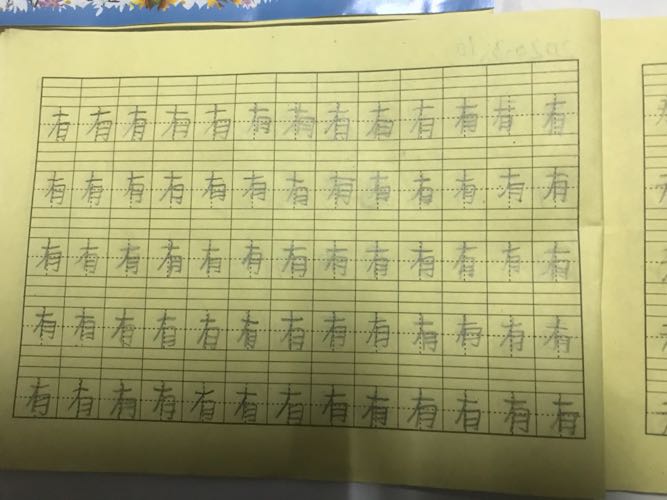 有有有有有有有有有有有有有
有有有有有有有有有有有有有
有有有有有有有有有有有有有
有有有有有有有有有有有有有
有有有有有有有有有有有有有